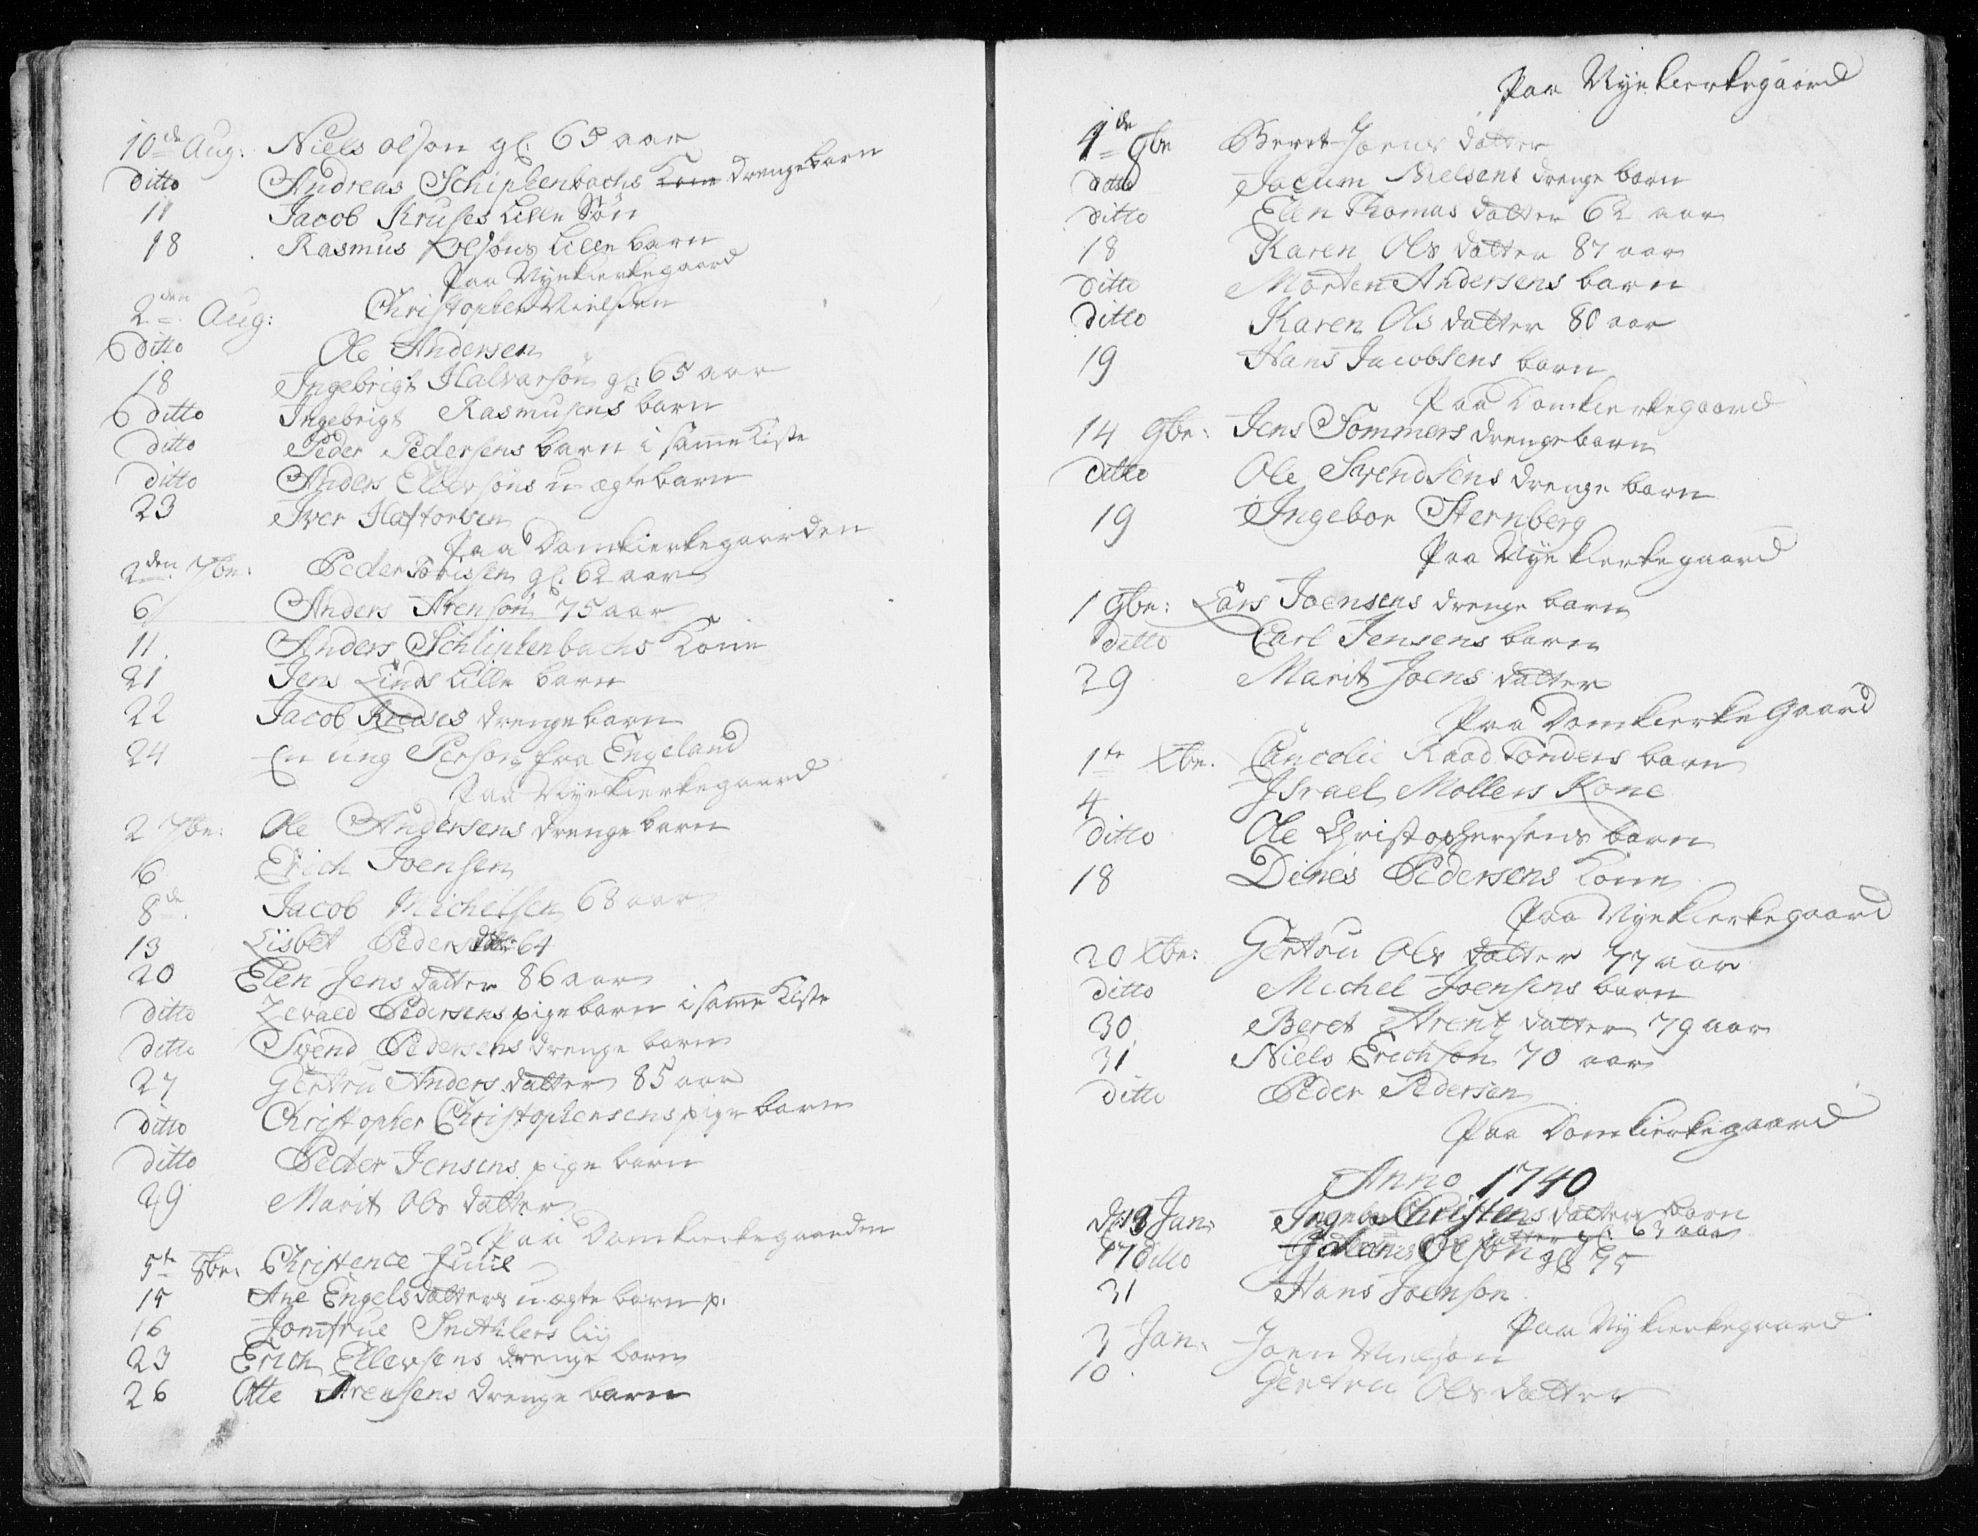 10de Aug: Niels olson gl: 65 aar
ditto Andreas Schiplenbachs Kone drengebarn
11 Jacob Kruses Lille Søn
18 Rasmus Lille barn
Paa Nyekierkegaard
2den Aug: Christopher Nielsen
6 ditto Ole Andersen
18 Ingebrigt Halvarsøn gl: 65 aar
6 ditto Ingebrigt Rasmusens barn
ditto Peder Pedersens barn i samme Kiste
ditto Anders Ellevsøns u-ægte barn
23 Iver Haftorsen
Paa Domkierkegaarden
2den 7be: Peder gl: 62 aar
6 Anders Arenson 75 aar
11. Anders Schliplenbachs Kone
21 Jens Linds Lille barn
22 Jacob Kruses drengebarn
24 En ung Person fra Engeland
Paa Nyekierkegaard
2 7be: Ole Andersens drengebarn
6 Erich Joensen
8de Jacob Michelsen 68 aar
13 Lisbet Peders datter 64
20 Elen Jens datter 86 aar
ditto Zevald Pedersens pigebarn i samme Kiste
ditto Svend Pedersens drenge barn
27 Gertru Anders datter 85 aar
ditto Christopher Christophersens pige barn
ditto Peder Jensens pige barn
29 Marit Ols datter
Paa Domkierkegaarden
5te 8be: Christence Juul
15 Ane Engelsdatters u-ægte barn p.
16 Jomfrue liig
23 Erich Ellevsens drenge barn
26 Otte Arensens drenge barn
Paa Nyekierkegaard
4de 8be Beret Joens datter
ditto Jacum Nielsens drenge barn
ditto Elen Thomas datter 62 aar
18 Karen Ols datter 87 aar
ditto Morten Andersens barn
ditto Karen Ols datter 80 aar
19 Hans Jacobsens barn
Paa Domkierkegaard
14 9be: Jens Sommers drengebarn
ditto Ole Svendsens drenge barn
19 Ingebor Sternberg
Paa Nyekierkegaard
1 9be: Lars Joensens drenge barn
ditto Carl Jensens barn
29 Marit Joens datter
Paa Domkierke Gaard
1te Xbe. Cancelie Raad Tonders barn
4 Israel Mollers Kone
ditto Ole Christophersens barn
18 Dines Pedersens Kone
Paa Nyekierkegaard
20 Xbe: Gertru Ols datter 77 aar
ditto Michel Joensens barn
30 Beret Arentz datter 79 aar
31 Niels Erichson 70 aar
ditto Peder Pedersen
Paa Domkierkegaard
Anno 1740
Jan: Christens datters barn
datter gl: 63 aar
17 ditto Olson gl 75
31 Hans Joenson
Paa Nykierkegaard
3 Jan: Joen Nielson
10. Gertru Ols datter